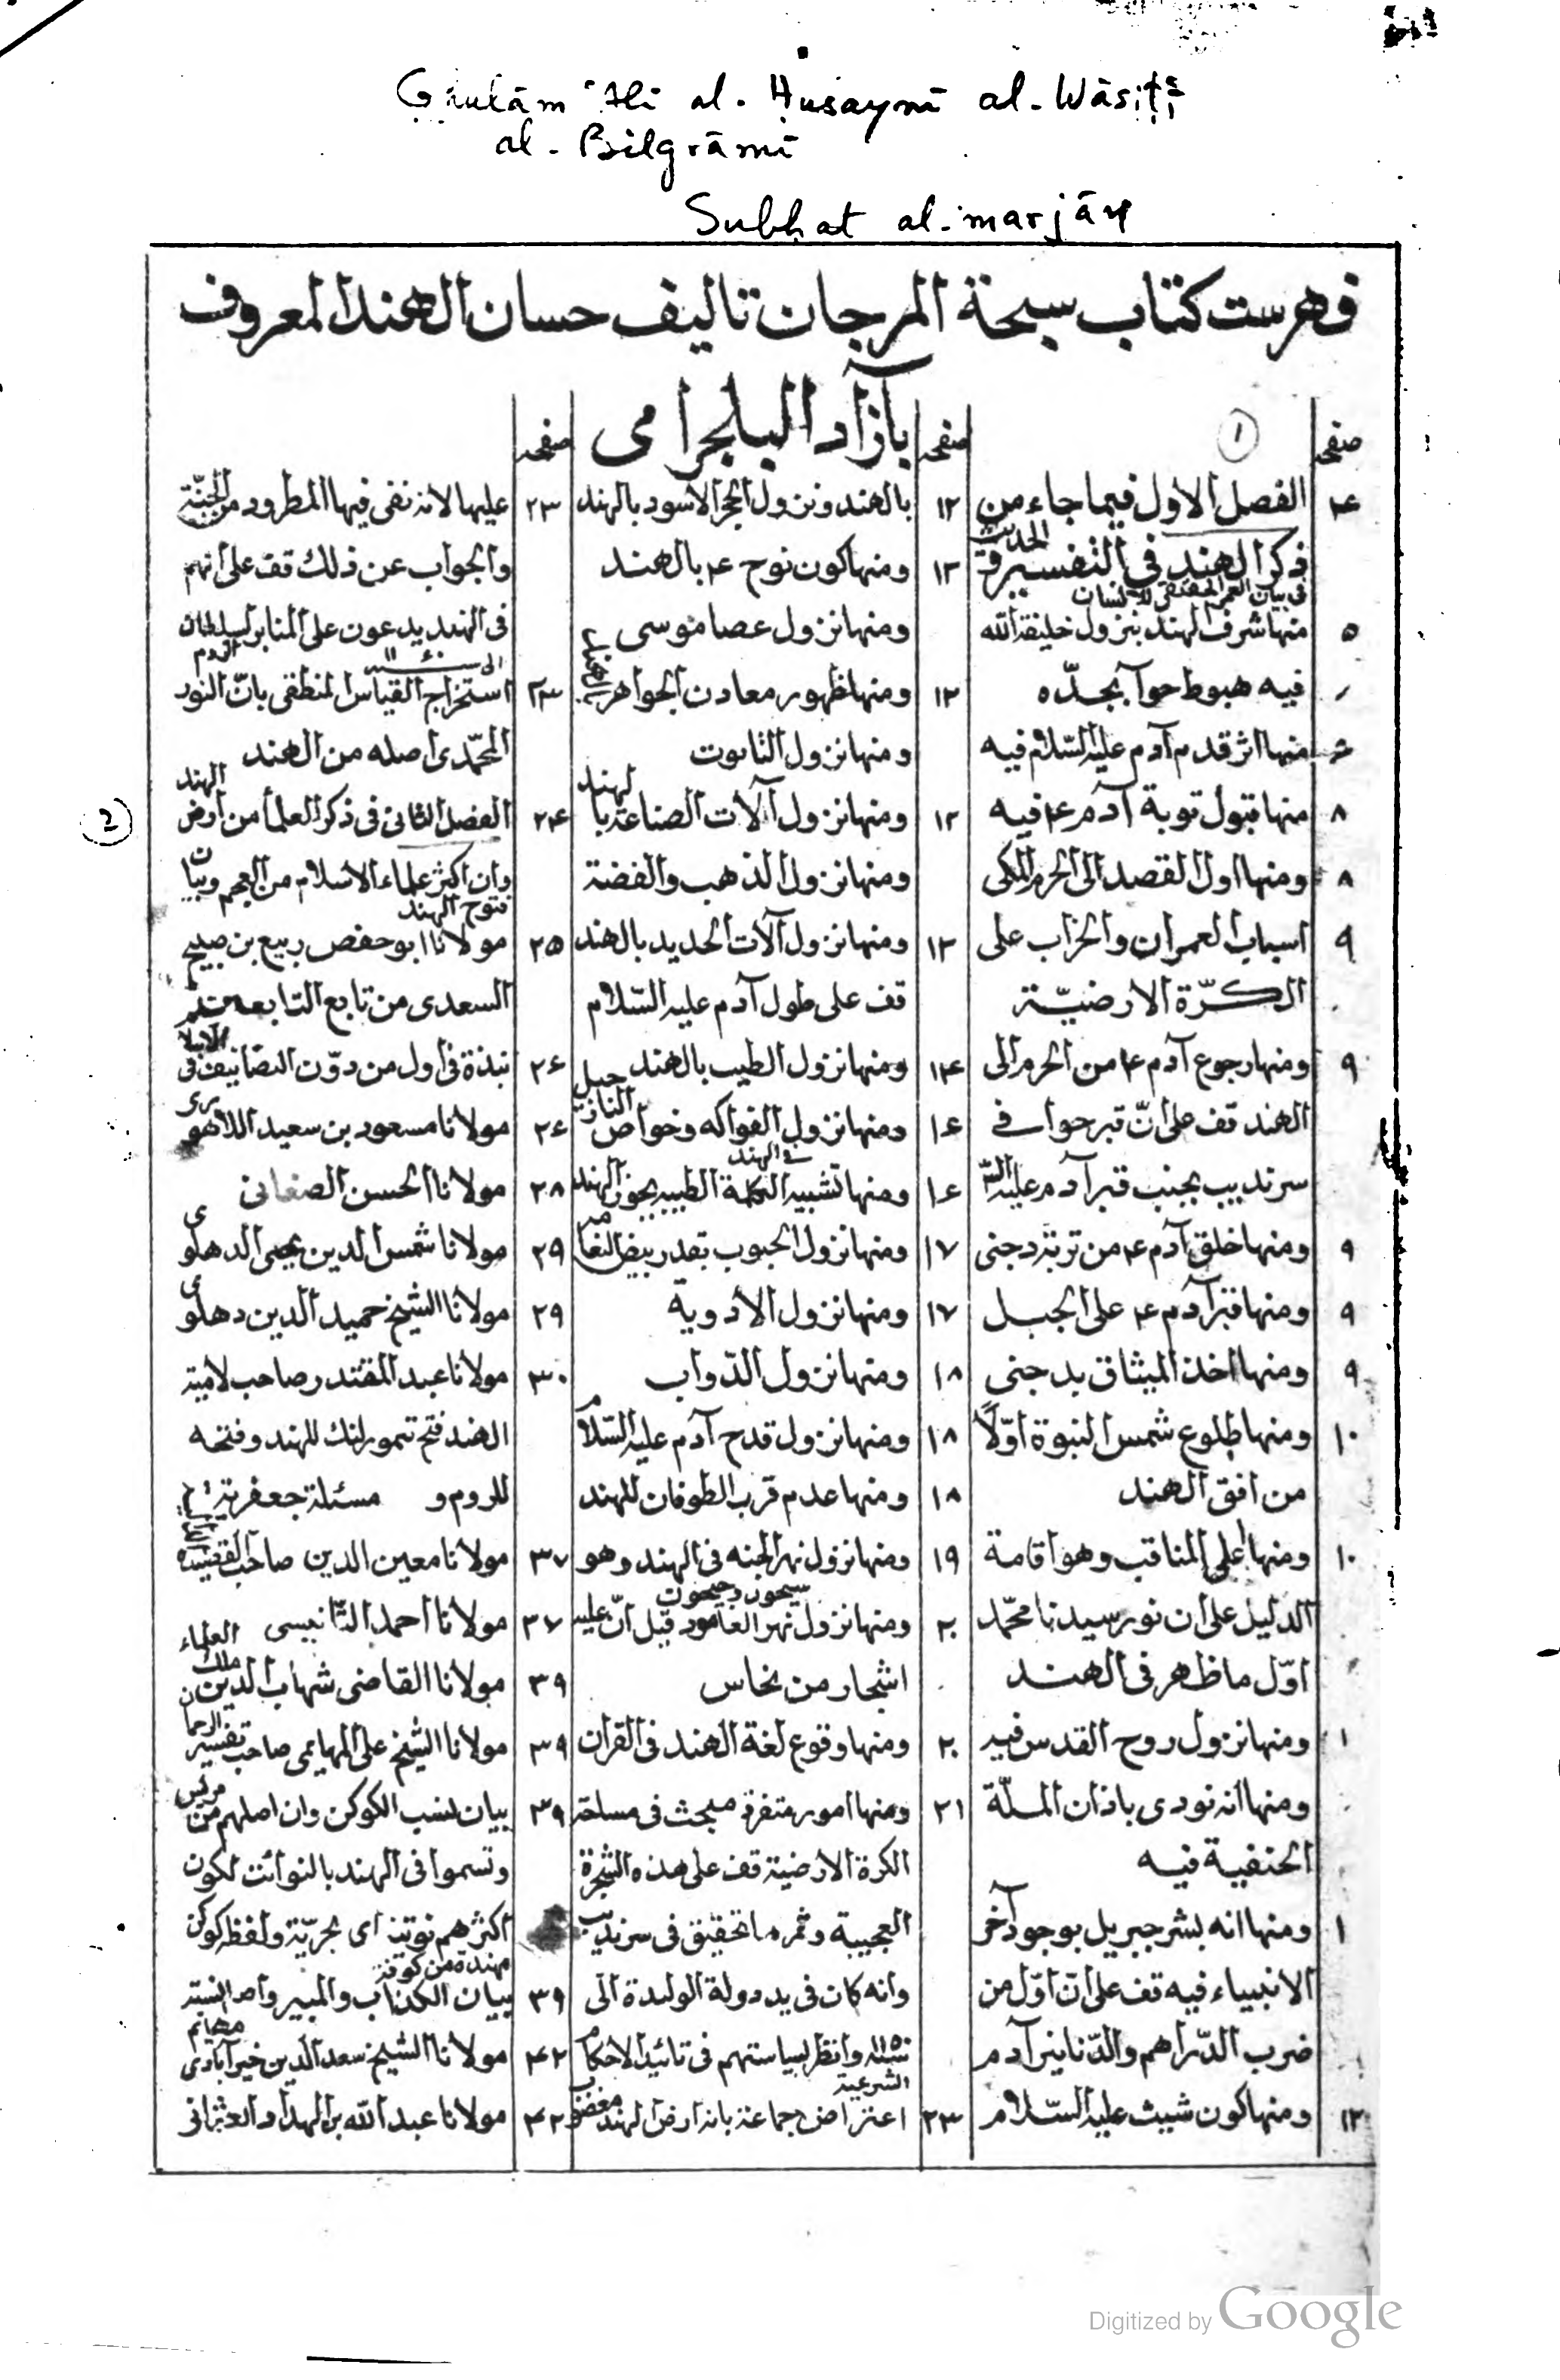 Ghulām ʿAlī al-Ḥusaynī al-Wāsiṭī
al-Bilgrāmī
Subḥat al-marjān
فهرست كتاب سبحة المرجان تاليف حسان الهند المعروف
بآزاد البلجرامى
صفحه
1
۴ الفصل الاول فيما جاء من
ذكر الهند فى التفسير و الحديث
فى بيان العمر للانسان
۵ منها شرف الهند بنزول خليفة الله
فيه هبوط حوا بجدّه
منها اثر قدم آدم عليه السّلام فيه
۸ منها قبول توبة آدم ع فيه
۸ ومنها اول القصد الى الحرم المكى
۹ اسباب العمران والخراب على
الكرّة الارضيّة
۹ ومنها رجوع آدم ع من الحرم الى
الهند قف على انّ قبر حوا فے
سرنديب بجنب قبر آدم عليه
۹ ومنها خلق آدم ع من تربة دجنى
۹ ومنها قبر آدم ع على الجبل
۹ ومنها اخذ الميثاق بدجنى
۱۰ ومنها طلوع شمس النبوة اوّلًا
من افق الهند
۱۰ ومنها اعلى المناقب وهو اقامة
الدليل على ان نور سيدنا محمّد
اوّل ما ظهر فى الهند
۱ ومنها نزول روح القدس فيه
ومنها انه نودى باذان الملّة
الحنفية فيه
۱ ومنها انه بشر جبريل بوجود آخر
الانبياء فيه قف على انّ اوّل من
ضرب الدّراهم والدّنانير آدم
۱۲ ومنها كون شيث عليه السّلام
صفحه
۱۲ بالهند ونزول الحجر الاسود بالهند
۱۲ ومنها كون نوح ع بالهند
ومنها نزول عصا موسى
۱۲ ومنها ظهور معادن الجواهر
ومنها نزول التابوت
۱۲ ومنها نزول آلات الصناعة بالهند
ومنها نزول الذهب والفضة
۱۲ ومنها نزول آلات الحديد بالهند
قف على طول آدم عليه السّلام
۱۴ ومنها نزول الطيب بالهند
۱۶ ومنها نزول الفواكه وخواص
فے الهند
۱۶ ومنها تشبيه الكلمة الطيبة الهند
۱۷ ومنها نزول الحبوب بقدر بيض النعام
۱۷ ومنها نزول الأدوية
۱۸ ومنها نزول الدّواب
۱۸ ومنها نزول قدح آدم عليه السّلام
۱۸ ومنها عدم قرب الطوفان للهند
۱۹ ومنها نزول نهر الجنه فى الهند وهو
سيحون وجيحون
۲۰ ومنها نزول نهر العامود قيل انّ عليه
اشجار من نحاس
۲۰ ومنها وقوع لغة الهند فى القران
۲۱ ومنها امور متفرقة مبحث فى مساحة
الكرة الارضية قف على هذه الشجرة
العجيبة وثمره ما تحقيق فى سرنديب
وانه كان فى يد دولة الوليدة الى
وانظر لسياستهم فى تائيد الاحكام
الشرعية
۲۳ اعتراض جماعة بانه ارض الهند مغضوب
صفحه
۲۳ عليها لانه نفى فيها المطرود من الجنّة
والجواب عن ذلك قف على انهم
فى الهند يدعون على المنابر لسلطان
الروم
۲۳ استخراج القياس المنطقى بانّ النور
المحمّدى اصله من الهند
2
۲۴ الفصل الثانى فى ذكر العلماء من ارض الهند
وان اكثر علماء الاسلام من العجم وبيان
فتوح الهند
۲۵ مولانا ابو حفص ربيع بن صبيح
السعدى من تابع التابعه
۲۶ نبذة فى اول من دوّن التصانيف فى
۲۶ مولانا مسعود بن سعيد اللاهورى
۲۸ مولانا الحسن الصغانى
۲۹ مولانا شمس الدين يحيى الدهلوى
۲۹ مولانا الشيخ حميد الدين دهلوى
۳۰ مولانا عبد المقتدر صاحب لامية
الهند فتح تيمورلنك للهند وفتحه
للروم و مسئلة جعفرية
۳۷ مولانا معين الدين
۳۷ مولانا احمد التانيسى
۳۹ مولانا القاضى شهاب الدين ملك العلماء
۳۹ مولانا الشيخ على المهايمى صاحب تفسير الرحمان
۳۹ بيان نسب الكوكن وان اصلهم من
وتسموا فى الهند بالنوائت لكون
اكثرهم نوتية اى بحريّة ولفظه كوكن
مهندة من كوفة
۳۹ بيان الكذاب والمبير
مهائم
۴۲ مولانا الشيخ سعد الدين خيرآبادى
۴۲ مولانا عبد الله بن الهداد العثمانى
Digitized by Google